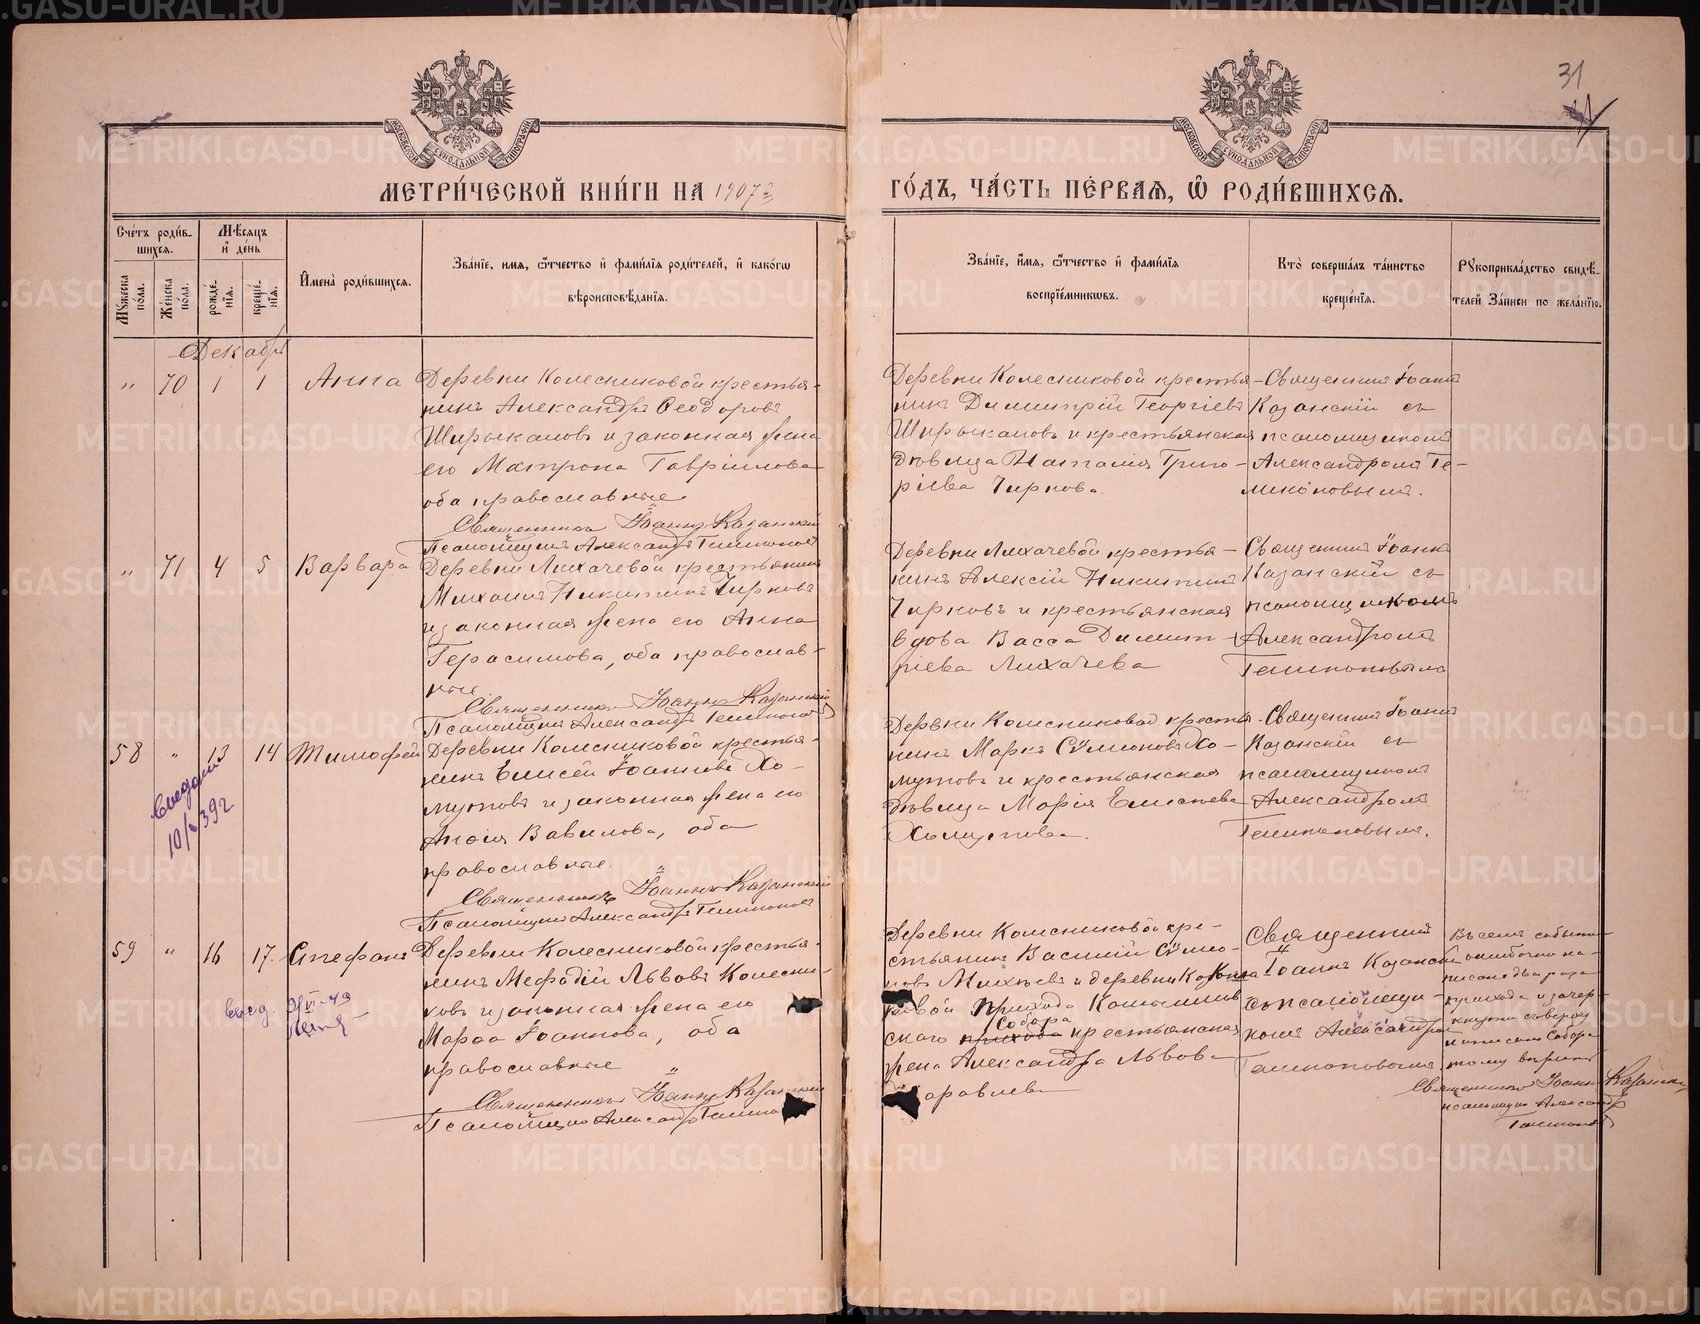 31
МОСКОВСКОЙ СИНОДАЛЬНОЙ ТИПОГРАФІИ
МОСКОВСКОЙ СИНОДАЛЬНОЙ ТИПОГРАФІИ
МЕТРИ́ЧЕСКОЙ КНИ́ГИ НА 1907й
ГО́ДЪ, ЧА́СТЬ ПЕ́РВАѦ, Ѽ РОДИ́ВШИХСѦ.
Сче́тъ роди́в-
шихсѧ.
Мꙋ́жеска по́ла.
Же́нска по́ла.
Мѣ́сѧцъ
и҆ де́нь
рожде́-
нїѧ.
креще́-
нїѧ.
И҆мена̀ роди́вшихсѧ.
Зва́нїе, имѧ, ѻ҆́тчество и҆ фами́лїѧ роди́телей, и҆ како́гѡ
вѣроисповѣ́данїѧ.
Зва́нїе, и҆́мѧ, ѻ҆́тчество и҆ фами́лїѧ
воспрїе́мникѡвъ.
Кто̀ соверша́лъ та́инство
креще́нїѧ.
Рꙋкоприкла́дство свидѣ́-
телей За́писи по жела́нїю.
Декабрь
" 70 1 1 Анна
Деревни Колесниковой крестья-
нинъ Александръ Ѳеодоровъ
Ширыкаловъ и законная жена
его Матрона Гавріилова
оба православные
Священникъ Іоаннъ Казанскій
Псаломщикъ Александръ
Деревни Колесниковой крестья-
нинъ Димитрій Георгіевъ
Ширыкаловъ и крестьянская
дѣвица Наталія Григо-
ріева Чиркова.
Священникъ Іоаннъ
Казанскій съ
псаломщикомъ
Александромъ
" 71 4 5 Варвара
Деревни Лихачевой крестьянинъ
Михаилъ Никитинъ Чирковъ
и законная жена его Анна
Герасимова, оба православ-
ные
Священникъ Іоаннъ Казанскій
Псаломщикъ Александръ
Деревни Лихачевой крестья-
нинъ Алексій Никитинъ
Чирковъ и крестьянская
вдова Васса Димит-
ріева Лихачева
Священникъ Іоаннъ
Казанскій съ
псаломщикомъ
Александромъ
58 " 13 14 Тимофей
Деревни Колесниковой крестья-
нинъ Елисей Іоанновъ Хо-
мутовъ и законная жена его
Вавилова, оба
православные.
Священникъ Іоаннъ Казанскій
Псаломщикъ Александръ
10/ 392
Деревни Колесниковой крестья-
нинъ Маркъ Сѵмеоновъ Хо-
мутовъ и крестьянская
дѣвица Марія Елисѣева
Хомутова.
Священникъ Іоаннъ
Казанскій съ
псаломщикомъ
Александромъ
59 " 16 17. Стефанъ
Деревни Колесниковой крестья-
нинъ Меѳодій Львовъ Колесни-
ковъ и законная жена его
Марѳа Іоаннова, оба
православные
Священникъ Іоаннъ Казанскій
Псаломщикъ Александръ
Деревни Колесниковой кре-
стьянинъ Василій Сѵмео-
новъ и деревни
ровой прихода
скаго прихода Собора крестьянская
жена Александра Львова
Священникъ
Іоаннъ Казанскій
съ псаломщи-
комъ Александромъ
Въ семъ событіи
ошибочно на-
писано два раза
прихода и зачер-
кнуто сверху
написано Собора
тому вѣрить
Священникъ Іоаннъ Казанскій
псаломщикъ Александръ
METRIKI.GASO-URAL.RU